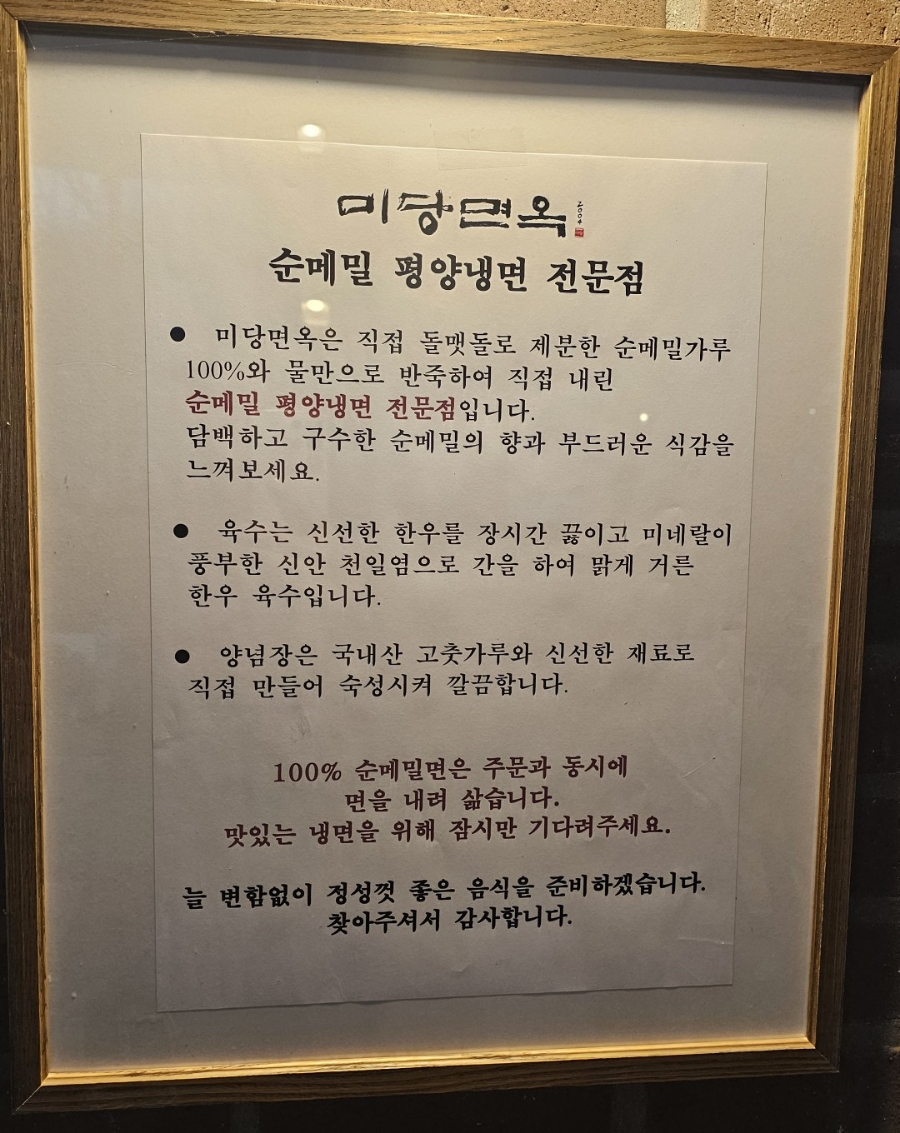 미당면옥 2004
순메밀 평양냉면 전문점
● 미당면옥은 직접 돌맷돌로 제분한 순메밀가루
100%와 물만으로 반죽하여 직접 내린
순메밀 평양냉면 전문점입니다.
담백하고 구수한 순메밀의 향과 부드러운 식감을
느껴보세요.
● 육수는 신선한 한우를 장시간 끓이고 미네랄이
풍부한 신안 천일염으로 간을 하여 맑게 거른
한우 육수입니다.
● 양념장은 국내산 고춧가루와 신선한 재료로
직접 만들어 숙성시켜 깔끔합니다.
100% 순메밀면은 주문과 동시에
면을 내려 삶습니다.
맛있는 냉면을 위해 잠시만 기다려주세요.
늘 변함없이 정성껏 좋은 음식을 준비하겠습니다.
찾아주셔서 감사합니다.